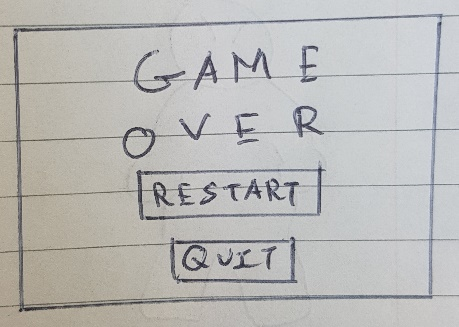 GAME
OVER
RESTART
QUIT